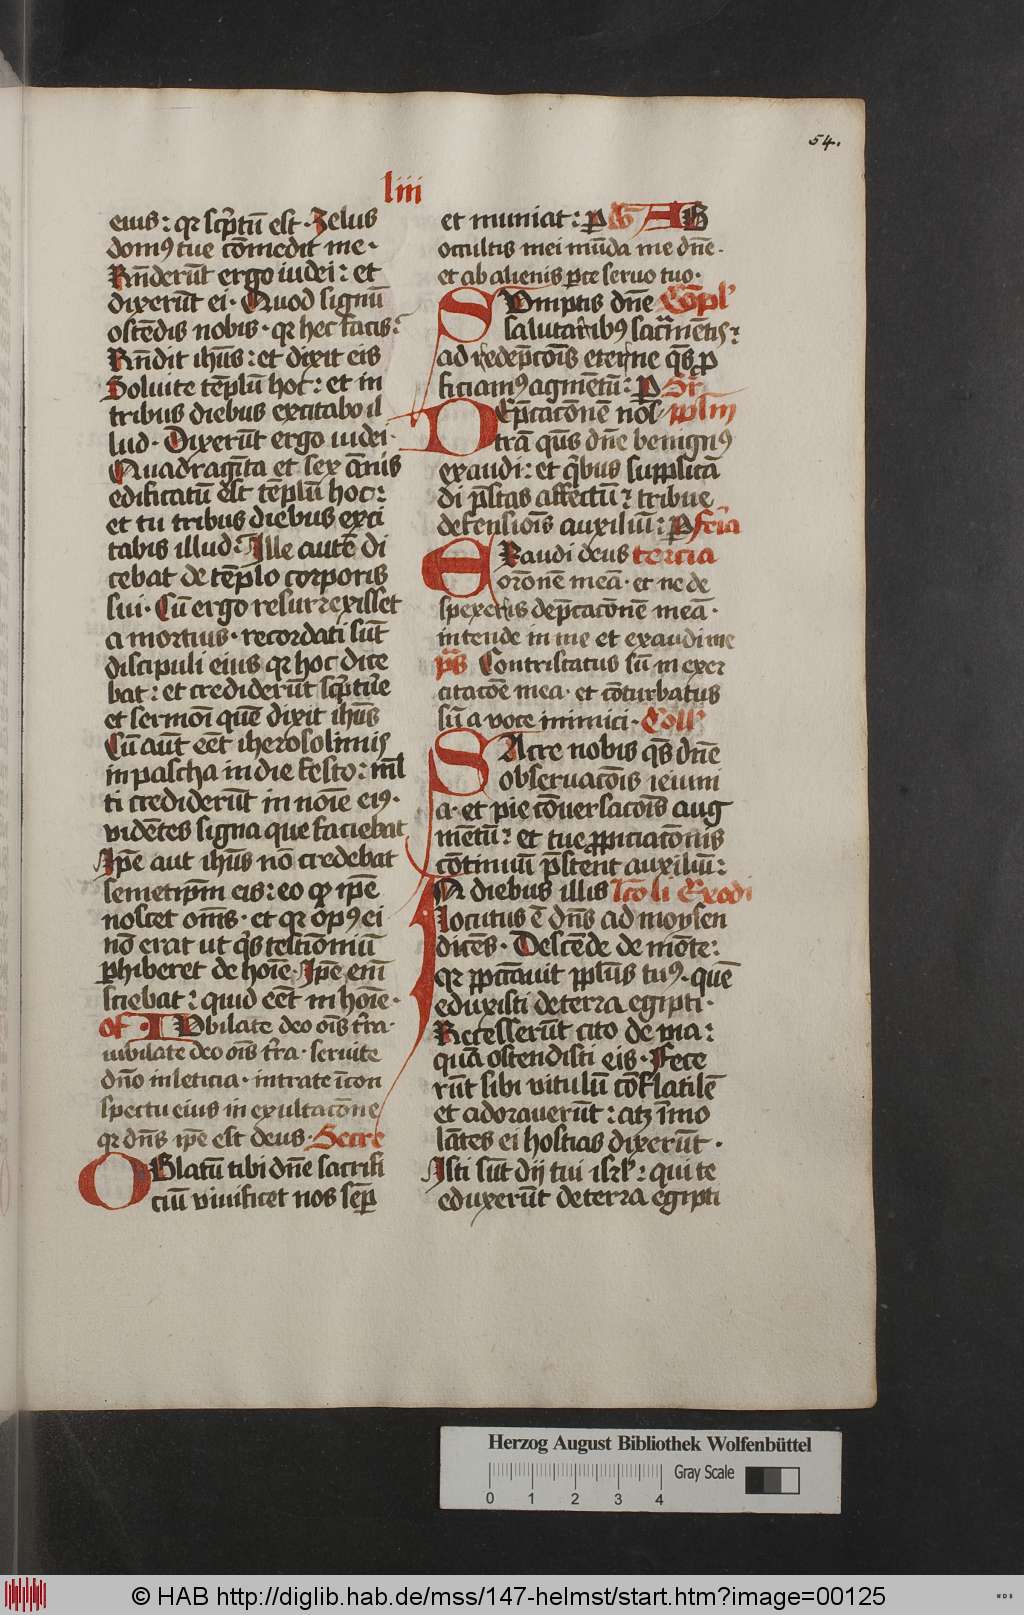 54.
liii
eius: qr scptū est. Zelus
dom9 tue cōmedit me.
Rn̄derūt ergo iudei: et
dixerūt ei. Quod signū
ostēdis nobis. qr hec facis?
Rn̄dit ihūs: et dixit eis
Soluite tēplū hoc: et in
tribus diebus excitabo il
lud. Dixerūt ergo iudei.
Quadragīta et sex ānis
edificatū est tēplū hoc:
et tu tribus diebus exci
tabis illud? Ille autē di
cebat de tēplo corporis
sui. Cū ergo resurrexisset
a mortuis. recordati sūt
discipuli eius qr hoc dice
bat: et crediderūt scptūe
et sermoī quē dixit ihūs
Cū aūt eēt iherosolimis
in pascha in die festo: ml
ti crediderūt in noīe ei9.
vidētes signa que faciebat
Ipē aut ihūs nō credebat
semetipm eis: eo qp ipē
noscet oms. et qr op9 ei
nō erat ut qs testiōmiū
phiberet de hoīe. Ipē enī
sciebat: quid eēt in hoīe.
of. IVbilate deo oīs tra.
iubilate deo oīs tra. seruite
dn̄o in leticia. intrate ī con
spectu eius in exultacōne
qr dn̄s ipē est deus. Secre
OBlatū tibi dn̄e sacrifi
ciū viuificet nos sēp
et muniat: p Co AB
occultis mei mūda me dn̄e.
et ab alienis pce seruo tuo.
SVmptis dn̄e Cōpl
salutarib9 sacrmētis:
ad redēpcoīs eterne qs p
ficiam9 agmētū: P Sr
DEpcacōnē nol pplm
tram qūs dn̄e benign9
exaudi: et qbus supplicā
di pstas affectū: tribue
defensiois auxiliū: P feria
EXaudi deus tercia
orōnē meā. et ne de
spexeris depcacōnē meā.
intende in me et exaudi me
ps Contristatus sū in exer
citacōe mea. et cōturbatus
sū a voce inimici. Coll
SAcre nobis qs dn̄e
obseruacōis ieiuni
a. et pie cōuersacōis aug
mētū: et tue ppiciacōnis
cōtinuū pstent auxiliū:
IN diebus illis lcō li Exodi
locutus ē dn̄s ad moysen
dicēs. Descēde de mōte:
qr ppeccauit pplūs tu9. quē
eduxisti de terra egipti.
Recesserūt cito de via:
quā ostendisti eis. Fece
rūt sibi vitulū cōflatilē
et adorauerūt: atz īmo
lātes ei hostias dixerūt.
Isti sūt dij tui isrl: qui te
eduxerūt de terra egipti
Herzog August Bibliothek Wolfenbüttel
Gray Scale
0 1 2 3 4
© HAB http://diglib.hab.de/mss/147-helmst/start.htm?image=00125